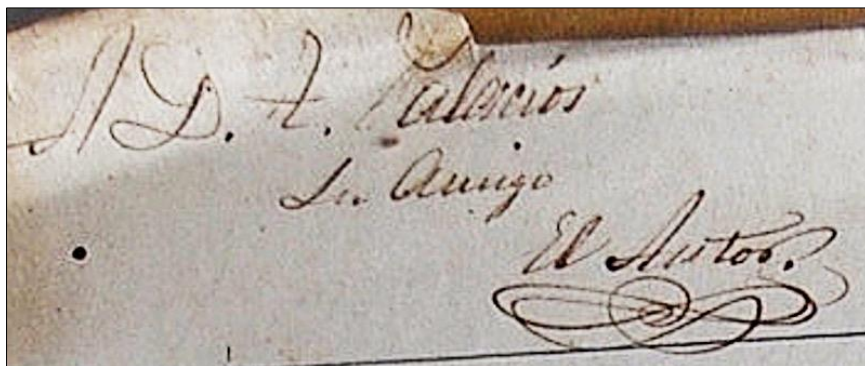 A D. A. Palacios
Su Amigo
El Autor.